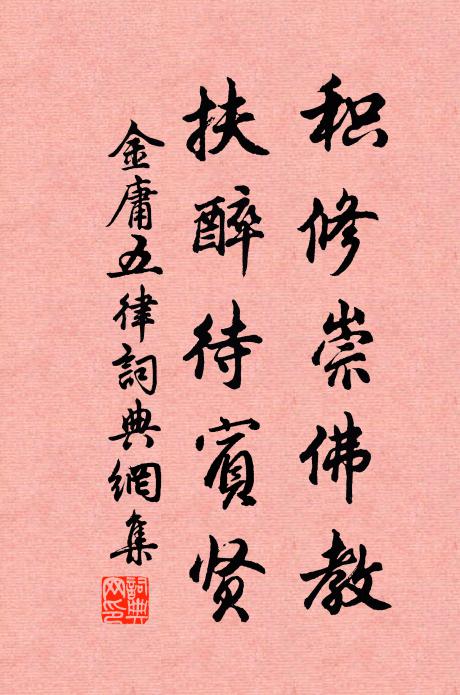 积修崇佛教
扶醉待賓贤
金庸五律詞典網集
詞典网印